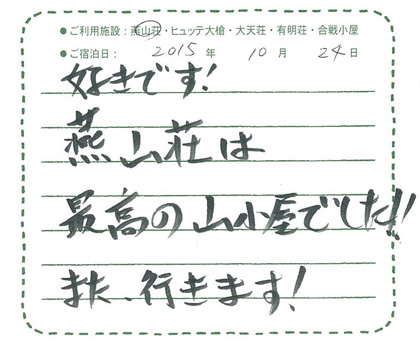 ●ご利用施設:燕山荘・ヒュッテ大槍・大天荘・有明荘・合戦小屋
●ご宿泊日: 2015 年 10 月 24 日
好きです!
燕山荘は
最高の山小屋でした!!
また、行きます!